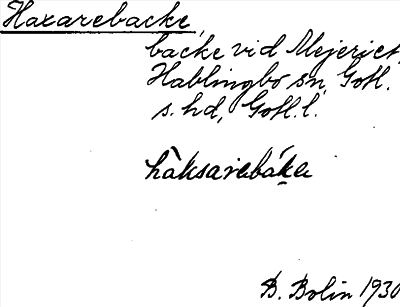 Haxarebacke,
backe vid Mejeriet,
Hablingbo sn, Gotl.
s. hd, Gotl. l.
hàksarebáka
B. Bolin 1930